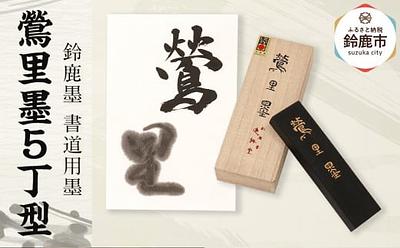 鶯里墨5丁型
鈴鹿墨 書道用墨
鶯
里
鶯里墨
鶯里墨
ふるさと納税
鈴鹿市
suzuka city